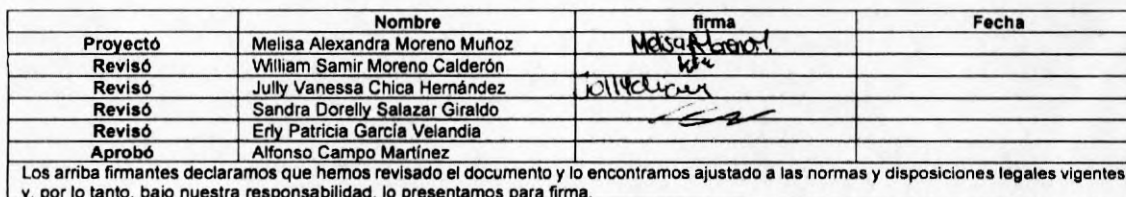 Nombre firma Fecha
Proyectó Melisa Alexandra Moreno Muñoz Melisa Moreno M.
Revisó William Samir Moreno Calderón
Revisó Jully Vanessa Chica Hernández
Revisó Sandra Dorelly Salazar Giraldo
Revisó Erly Patricia García Velandia
Aprobó Alfonso Campo Martínez
Los arriba firmantes declaramos que hemos revisado el documento y lo encontramos ajustado a las normas y disposiciones legales vigentes
y, por lo tanto, bajo nuestra responsabilidad, lo presentamos para firma.